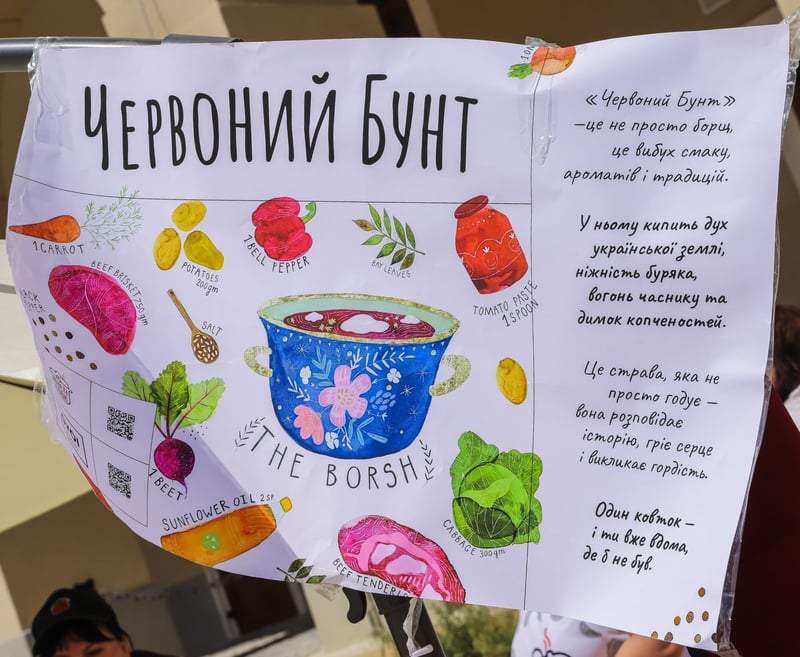 Червоний Бунт
1 CARROT
POTATOES
200gm
1 BELL PEPPER
BAY LEAVES
TOMATO PASTE
1 SPOON
BEEF BRISKET 750 gm
SALT
1 BEET
THE BORSH
SUNFLOWER OIL 2 SP.
CABBAGE 300gm
BEEF
«Червоний Бунт»
—це не просто борщ,
це вибух смаку,
ароматів і традицій.
У ньому кипить дух
української землі,
ніжність буряка,
вогонь часнику та
димок копченостей.
Це страва, яка не
просто годує —
вона розповідає
історію, гріє серце
і викликає гордість.
Один ковток —
і ти вже вдома,
де б не був.